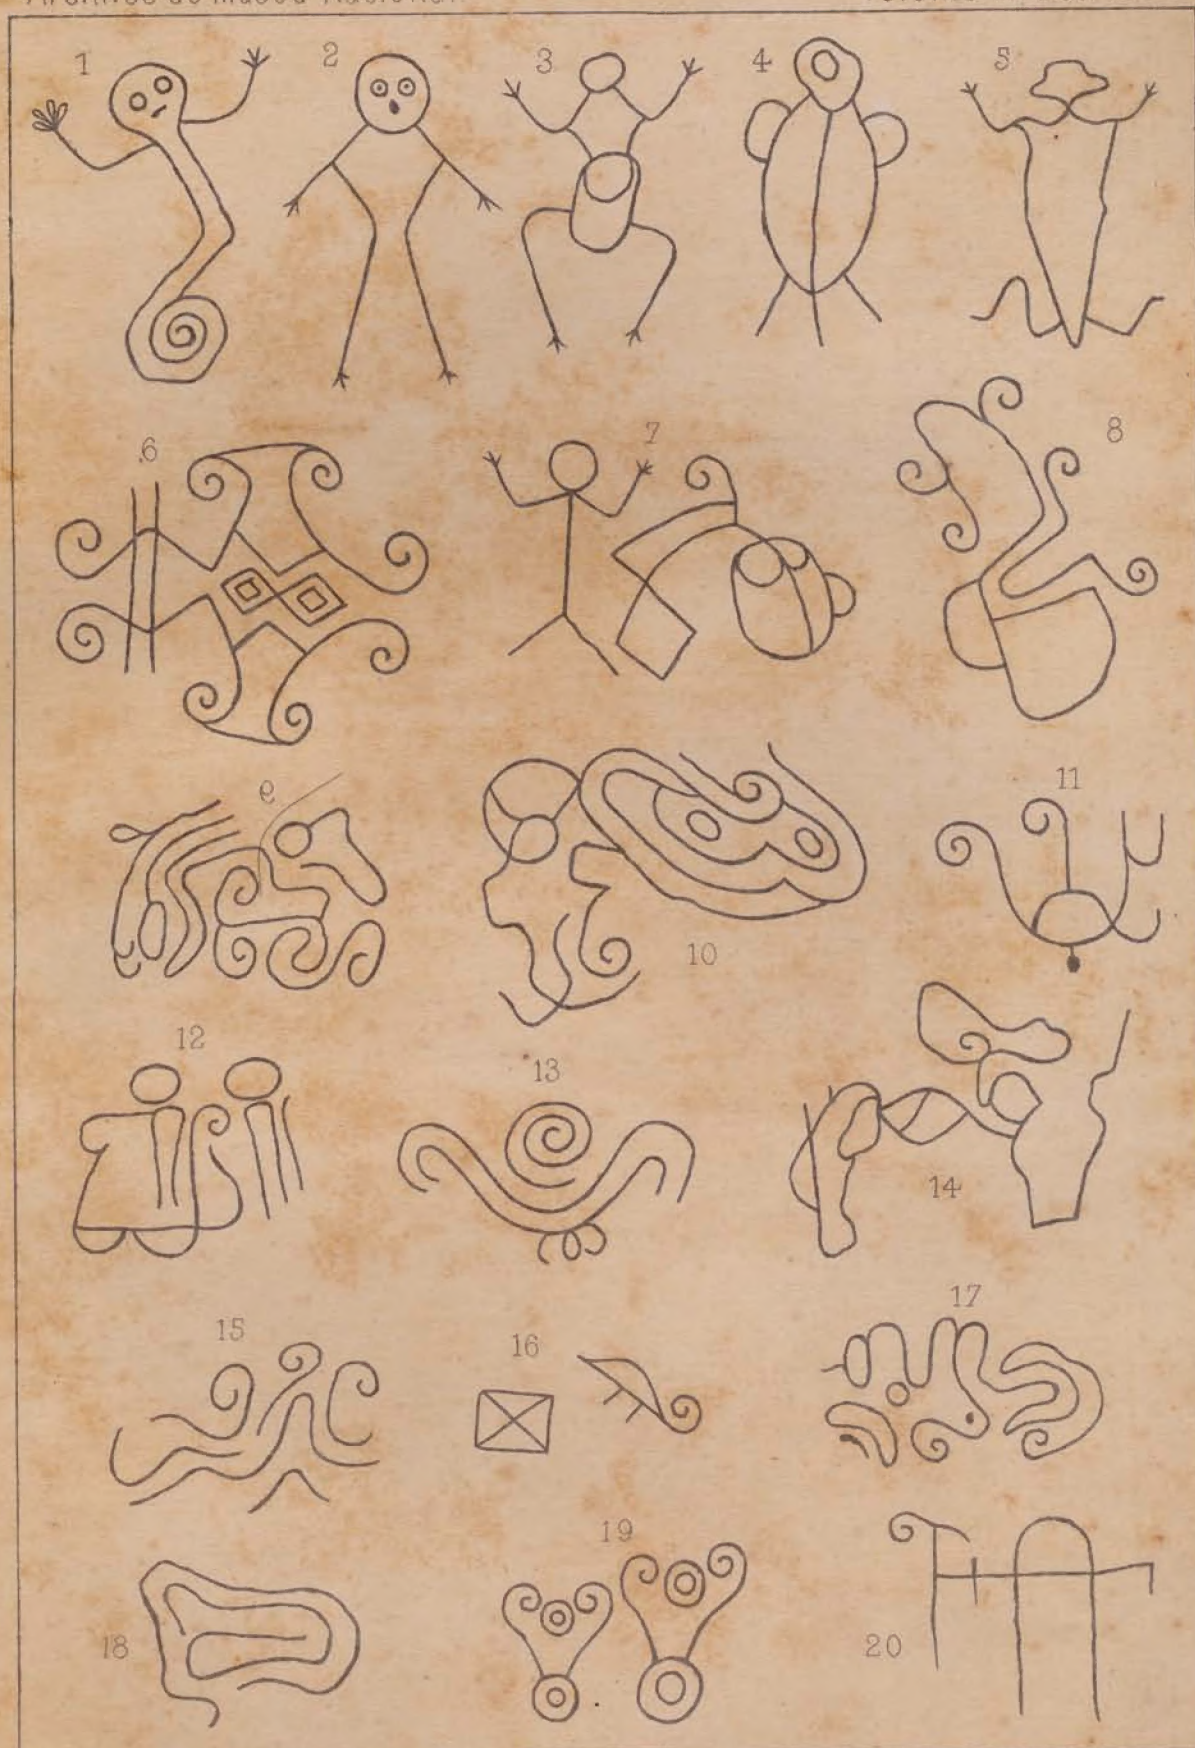 1 2 3 4 5
6 7 8
e 10 11
12 13 14
15 16 17
18 19 20